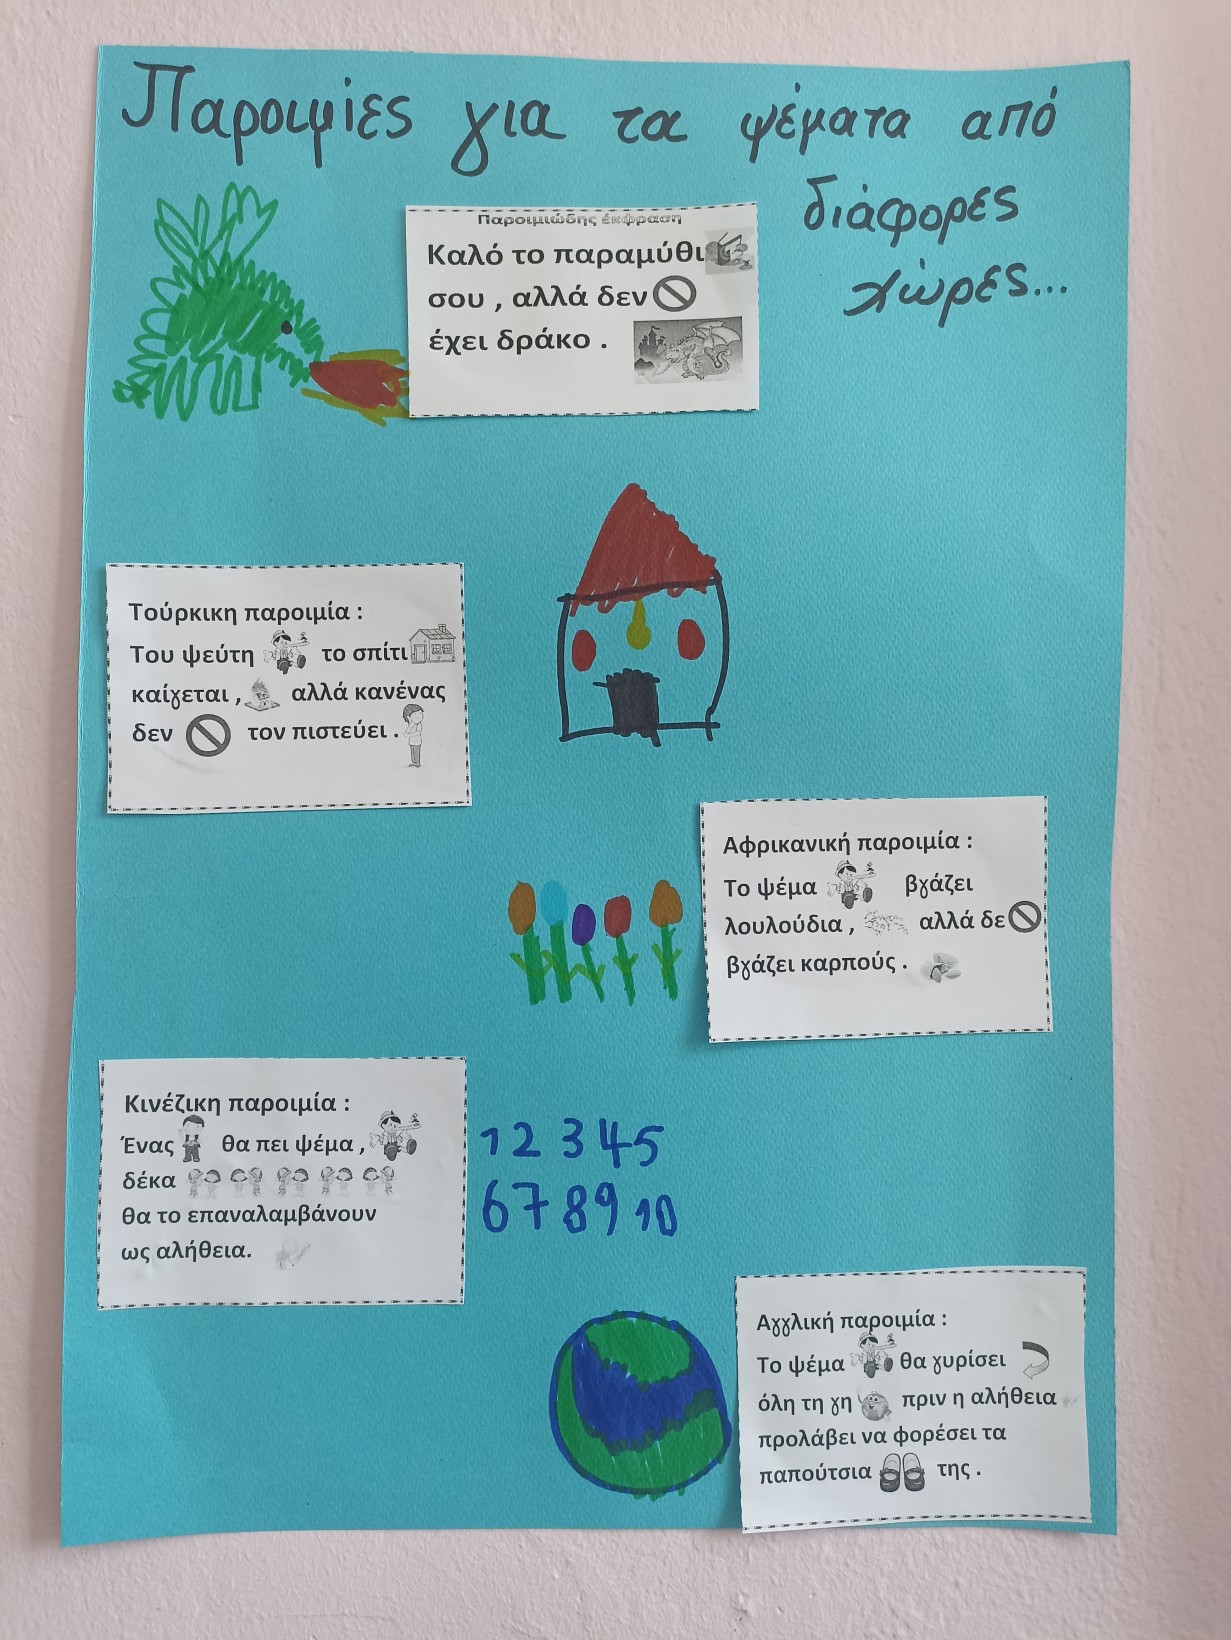 Παροιμίες για τα ψέματα από
διάφορες
χώρες...
Παροιμιώδης έκφραση
Καλό το παραμύθι
σου , αλλά δεν
έχει δράκο .
Τούρκικη παροιμία :
Του ψεύτη το σπίτι
καίγεται , αλλά κανένας
δεν τον πιστεύει .
Αφρικανική παροιμία :
Το ψέμα βγάζει
λουλούδια , αλλά δε
βγάζει καρπούς .
Κινέζικη παροιμία :
Ένας θα πει ψέμα ,
δέκα
θα το επαναλαμβάνουν
ως αλήθεια.
1 2 3 4 5
6 7 8 9 10
Αγγλική παροιμία :
Το ψέμα θα γυρίσει
όλη τη γη πριν η αλήθεια
προλάβει να φορέσει τα
παπούτσια της .